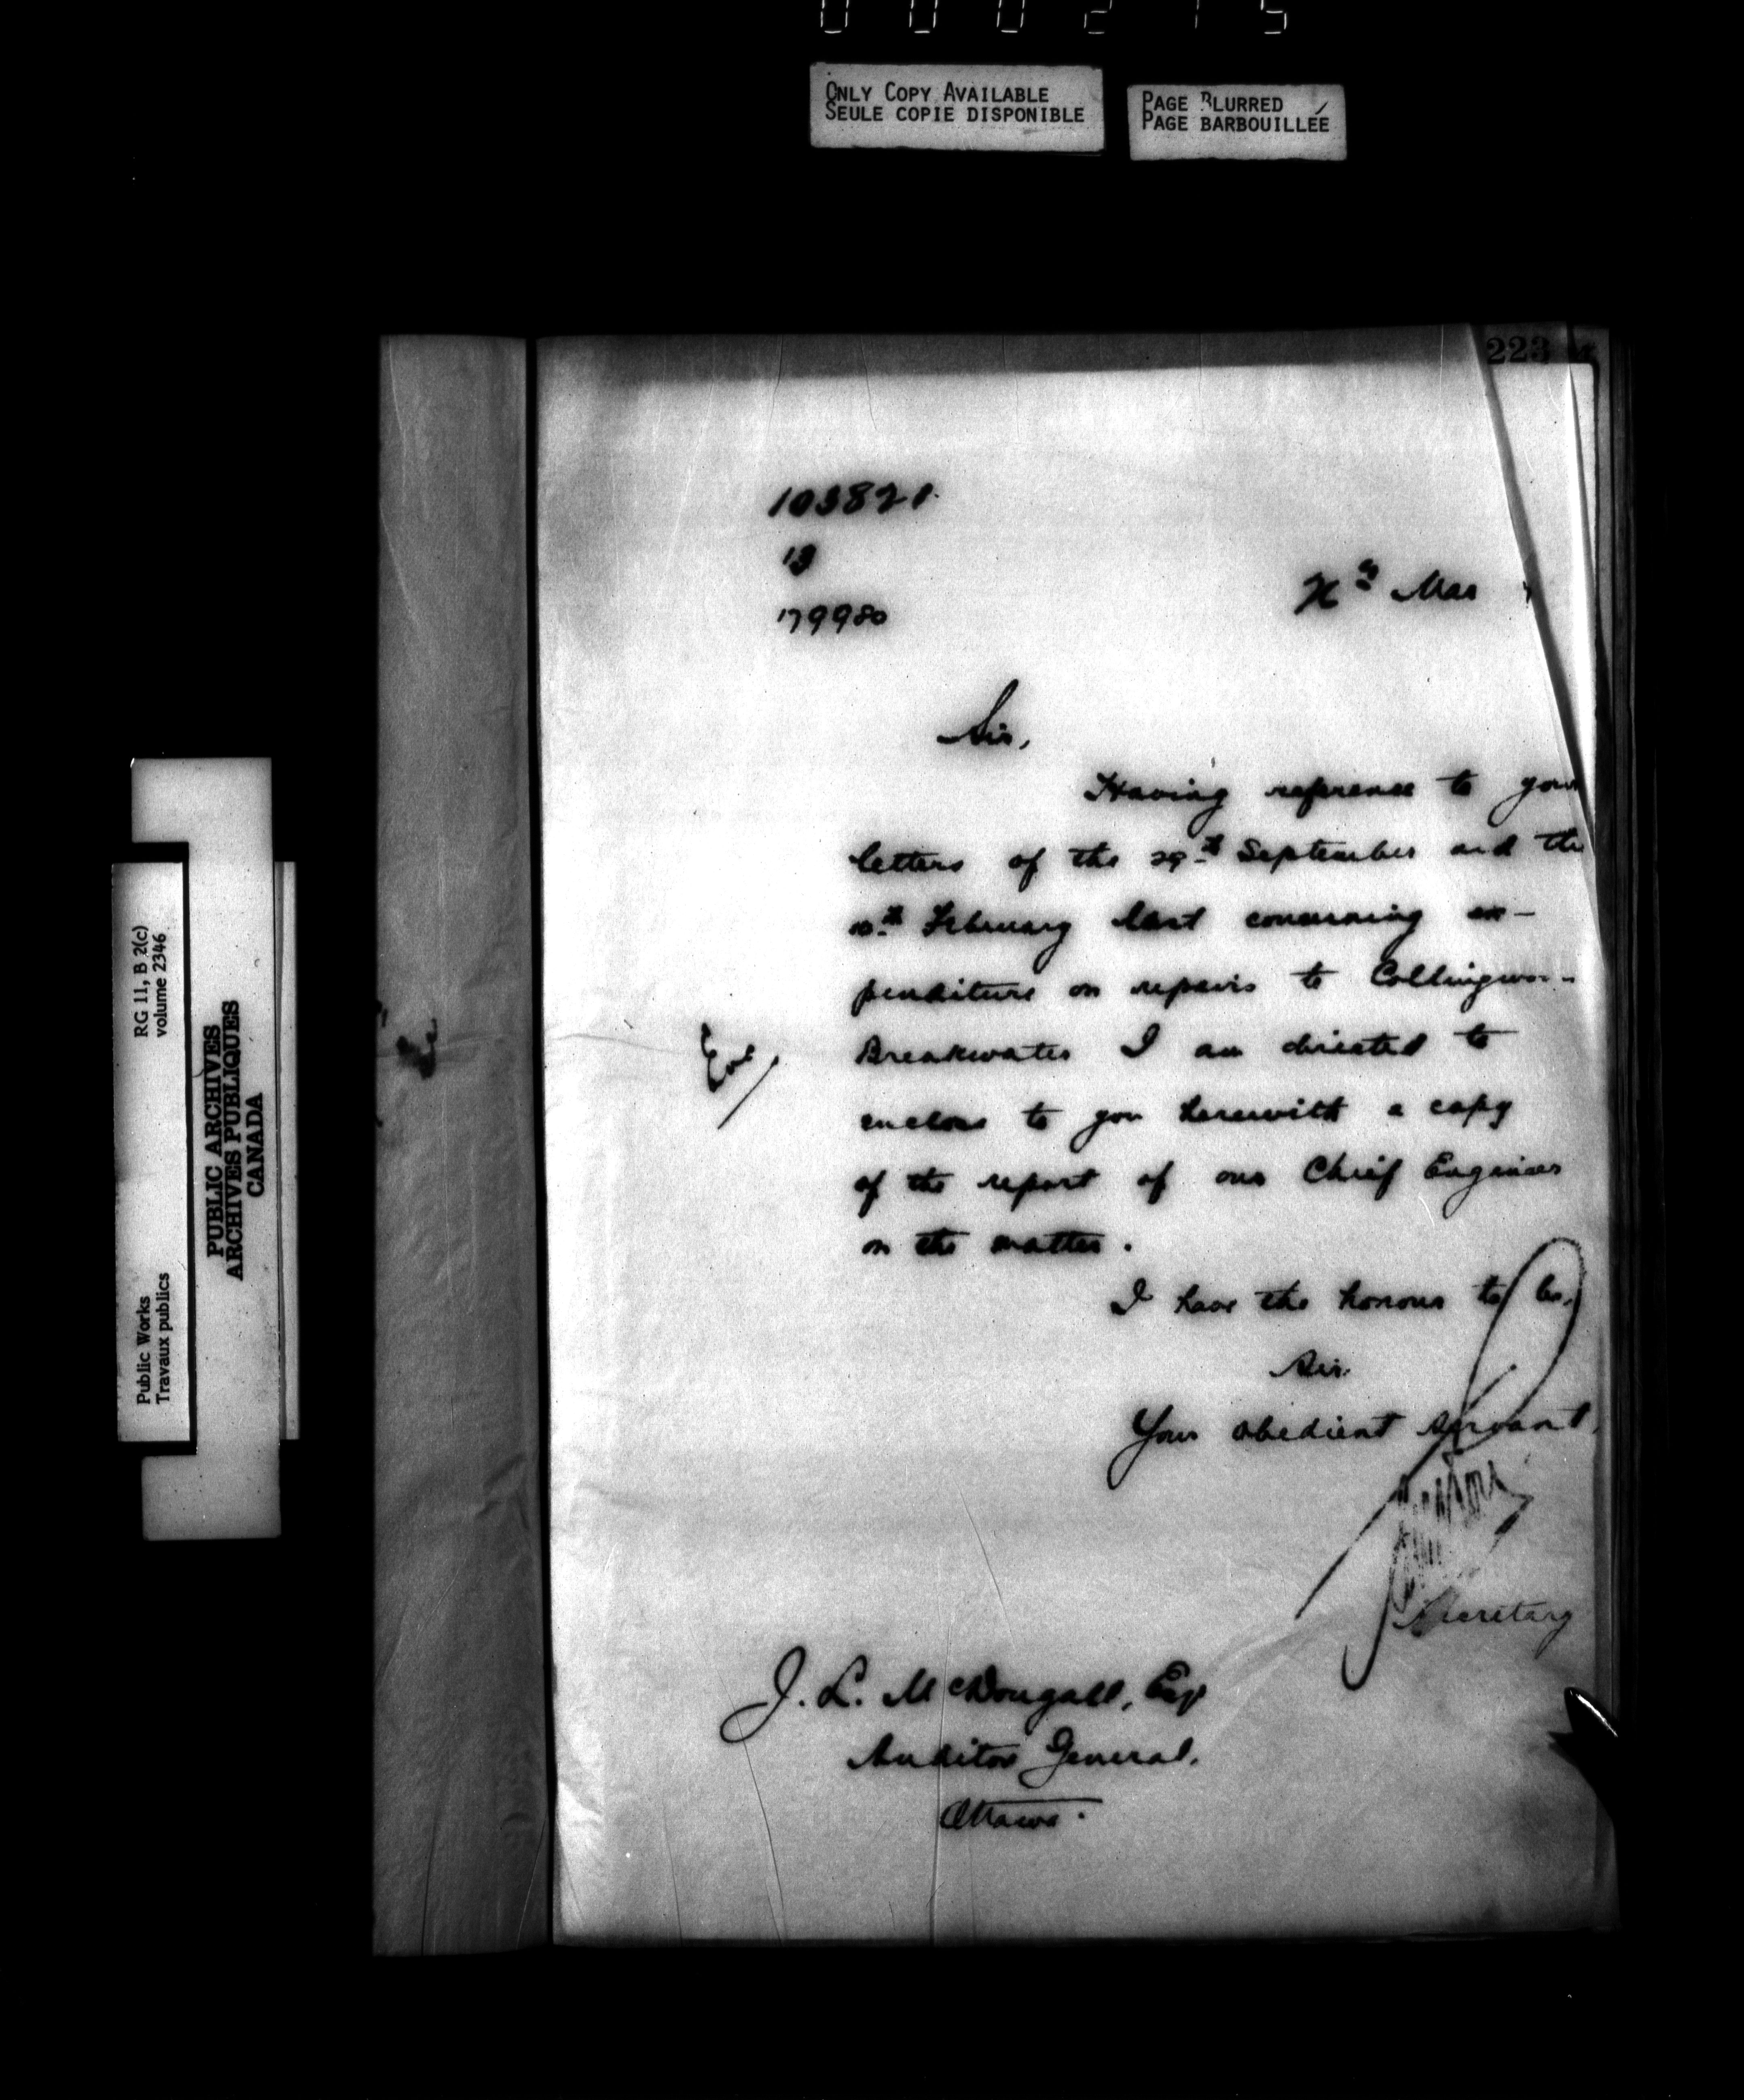 000215
ONLY COPY AVAILABLE
SEULE COPIE DISPONIBLE
PAGE BLURRED
PAGE BARBOUILLÉE
223
103821
13
179980
Mar
Sir,
Having reference to your
letters of the 29th September and the
10th February last concerning ex-
penditure on repairs to Collingwoo-
Breakwater I am directed to
enclose to you herewith a copy
of the report of our Chief Engineer
on the matter.
I have the honour to be,
Sir
Your obedient servant,
Secretary
J. L. McDougall, Esq
Auditor General.
Ottawa.
RG 11, B 2(c)
volume 2346
PUBLIC ARCHIVES
ARCHIVES PUBLIQUES
CANADA
Public Works
Travaux publics